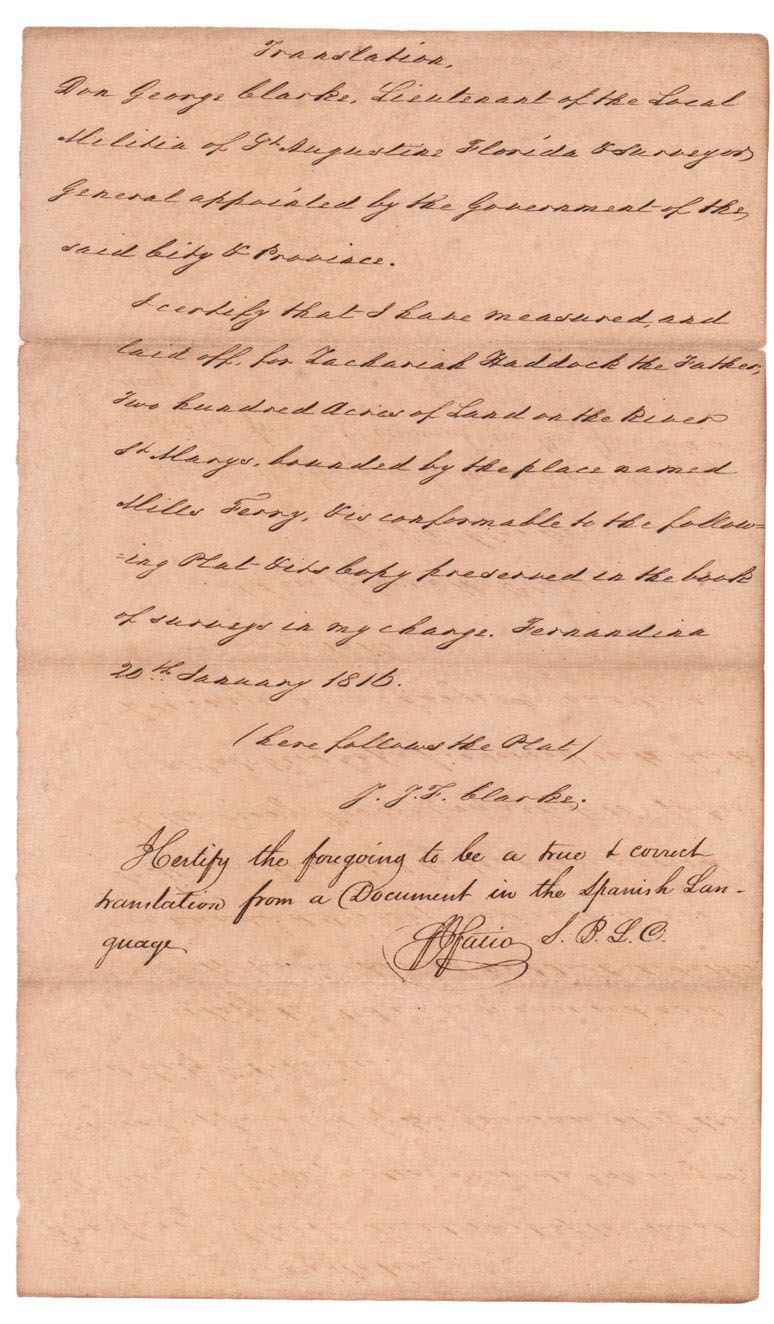 Translation,
Don George Clarke, Lieutenant of the Local
Militia of St Augustine Florida & Surveyor
General appointed by the Government of the,
said City & Province.
I certify that I have measured, and
laid off, for Zachariah Haddock the Father,
Two hundred Acres of Land on the River
St Marys, bounded by the place named
Mills Ferry, & is conformable to the follow=
=ing Plat & its Copy preserved in the book
of surveys in my charge. Fernandina
20th January 1816.
(here follows the Plat)
G. J. F. Clarke,
I Certify the foregoing to be a true & correct
translation from a Document in the Spanish Lan-
guage
Fatio S. B. L. C.